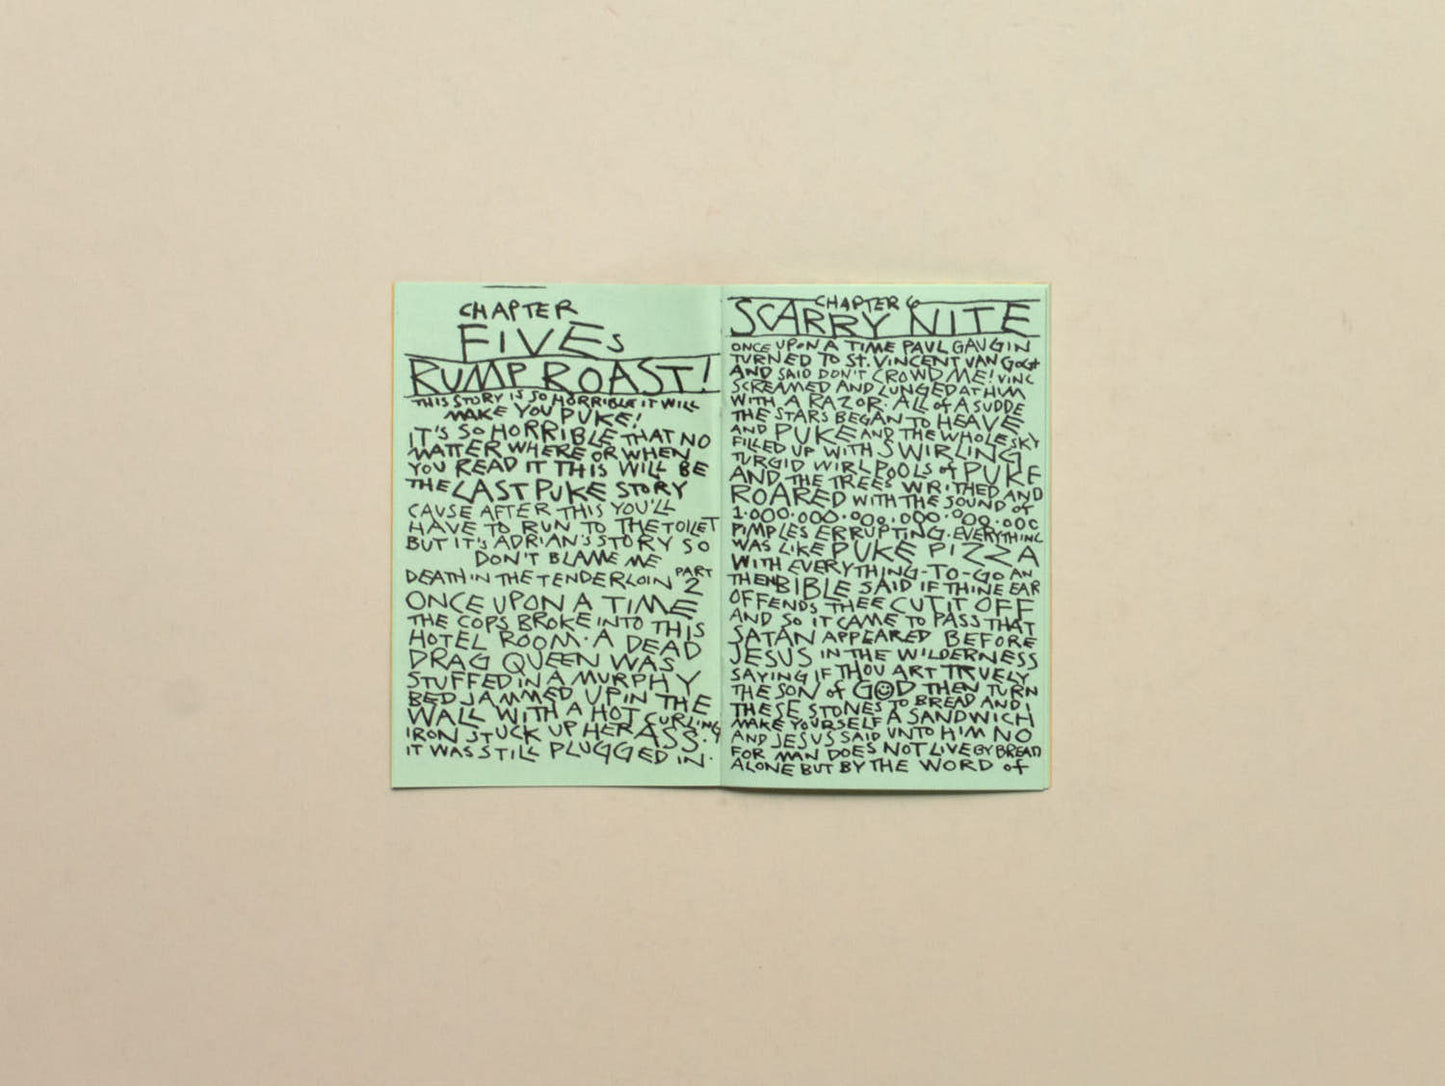 CHAPTER
FIVEs
RUMP ROAST!
THIS STORY IS SO HORRIBLE IT WILL
MAKE YOU PUKE!
IT'S SO HORRIBLE THAT NO
MATTER WHERE OR WHEN
YOU READ IT THIS WILL BE
THE LAST PUKE STORY
CAUSE AFTER THIS YOU'LL
HAVE TO RUN TO THE TOILET
BUT IT'S ADRIAN'S STORY SO
DON'T BLAME ME
DEATH IN THE TENDERLOIN PART 2
ONCE UPON A TIME
THE COPS BROKE INTO THIS
HOTEL ROOM. A DEAD
DRAG QUEEN WAS
STUFFED IN A MURPHY
BED JAMMED UP IN THE
WALL WITH A HOT CURLING
IRON STUCK UP HER ASS.
IT WAS STILL PLUGGED IN.
CHAPTER 6
SCARRY NITE
ONCE UPON A TIME PAUL GAUGIN
TURNED TO ST. VINCENT VAN GOGH
AND SAID DON'T CROWD ME! VINC
SCREAMED AND LUNGED AT HIM
WITH A RAZOR. ALL of A SUDDE
THE STARS BEGAN TO HEAVE
AND PUKE AND THE WHOLE SKY
FILLED UP WITH SWIRLING
TURGID WIRLPOOLS of PUKE
AND THE TREES WRITHED AND
ROARED WITH THE SOUND OF
1.000.000.000.000.000.000.000
PIMPLES ERRUPTING. EVERYTHING
WAS LIKE PUKE PIZZA
WITH EVERYTHING-TO-GO AN
THEN BIBLE SAID IF THINE EAR
OFFENDS THEE CUT IT OFF
AND SO IT CAME TO PASS THAT
SATAN APPEARED BEFORE
JESUS IN THE WILDERNESS
SAYING IF THOU ART TRUELY
THE SON of GOD THEN TURN
THESE STONES TO BREAD AND
MAKE YOURSELF A SANDWICH
AND JESUS SAID UNTO HIM NO
FOR MAN DOES NOT LIVE BY BREAD
ALONE BUT BY THE WORD of